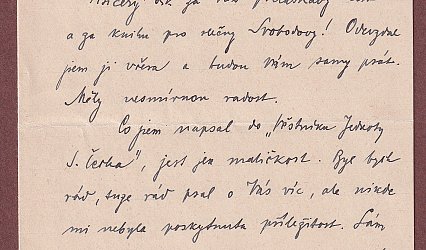 a za knihu pro slečny Svobodovy! Odevzdal
jsem ji včera a budou Vám samy psát.
Měly nesmírnou radost.
Co jsem napsal do „Věstníka Jednoty
S. Čecha", jest jen maličkost. Byl bych
rád, tuze rád psal o Vás víc, ale nikde
mi nebyla poskytnuta příležitost. Sám